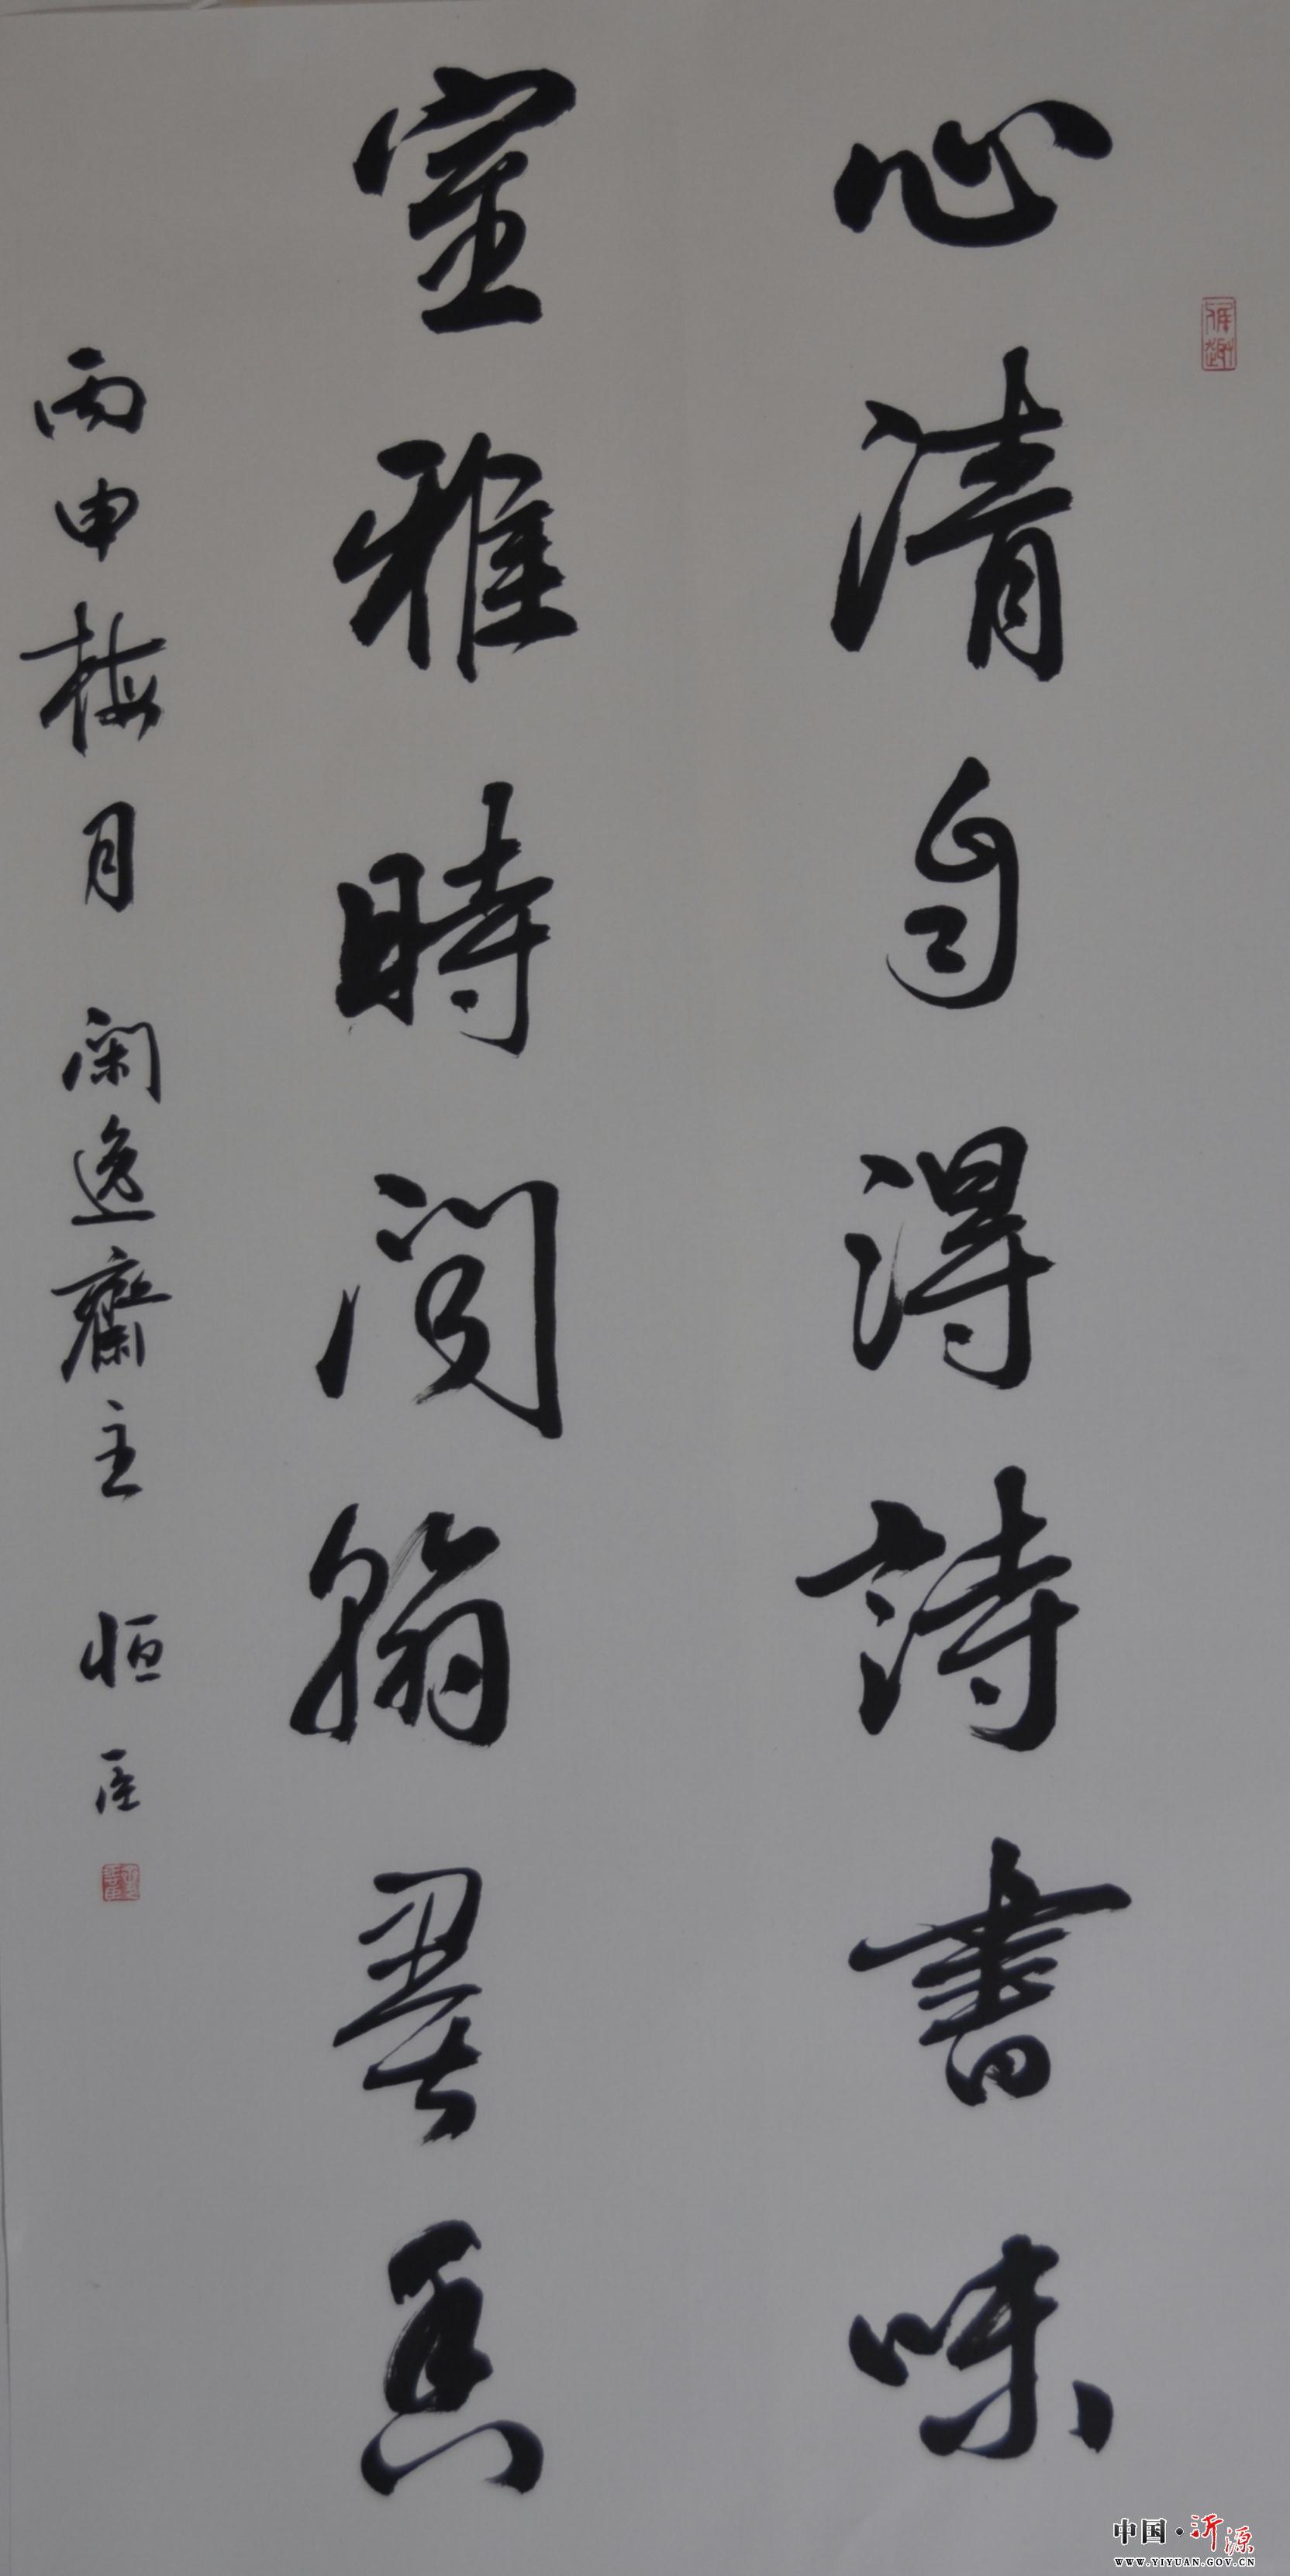 心清自得詩書味
室雅時聞翰墨香
丙申梅月 閑逸齋主 恒臣
中国·沂源
WWW.YIYUAN.GOV.CN